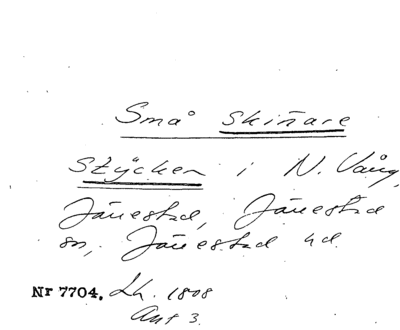 Små skiñare
stÿcken i N. Vång,
Järrestad, Järrestad
sn, Järrestad hd.
Nr 7704. Lh. 1808
Ant 3.